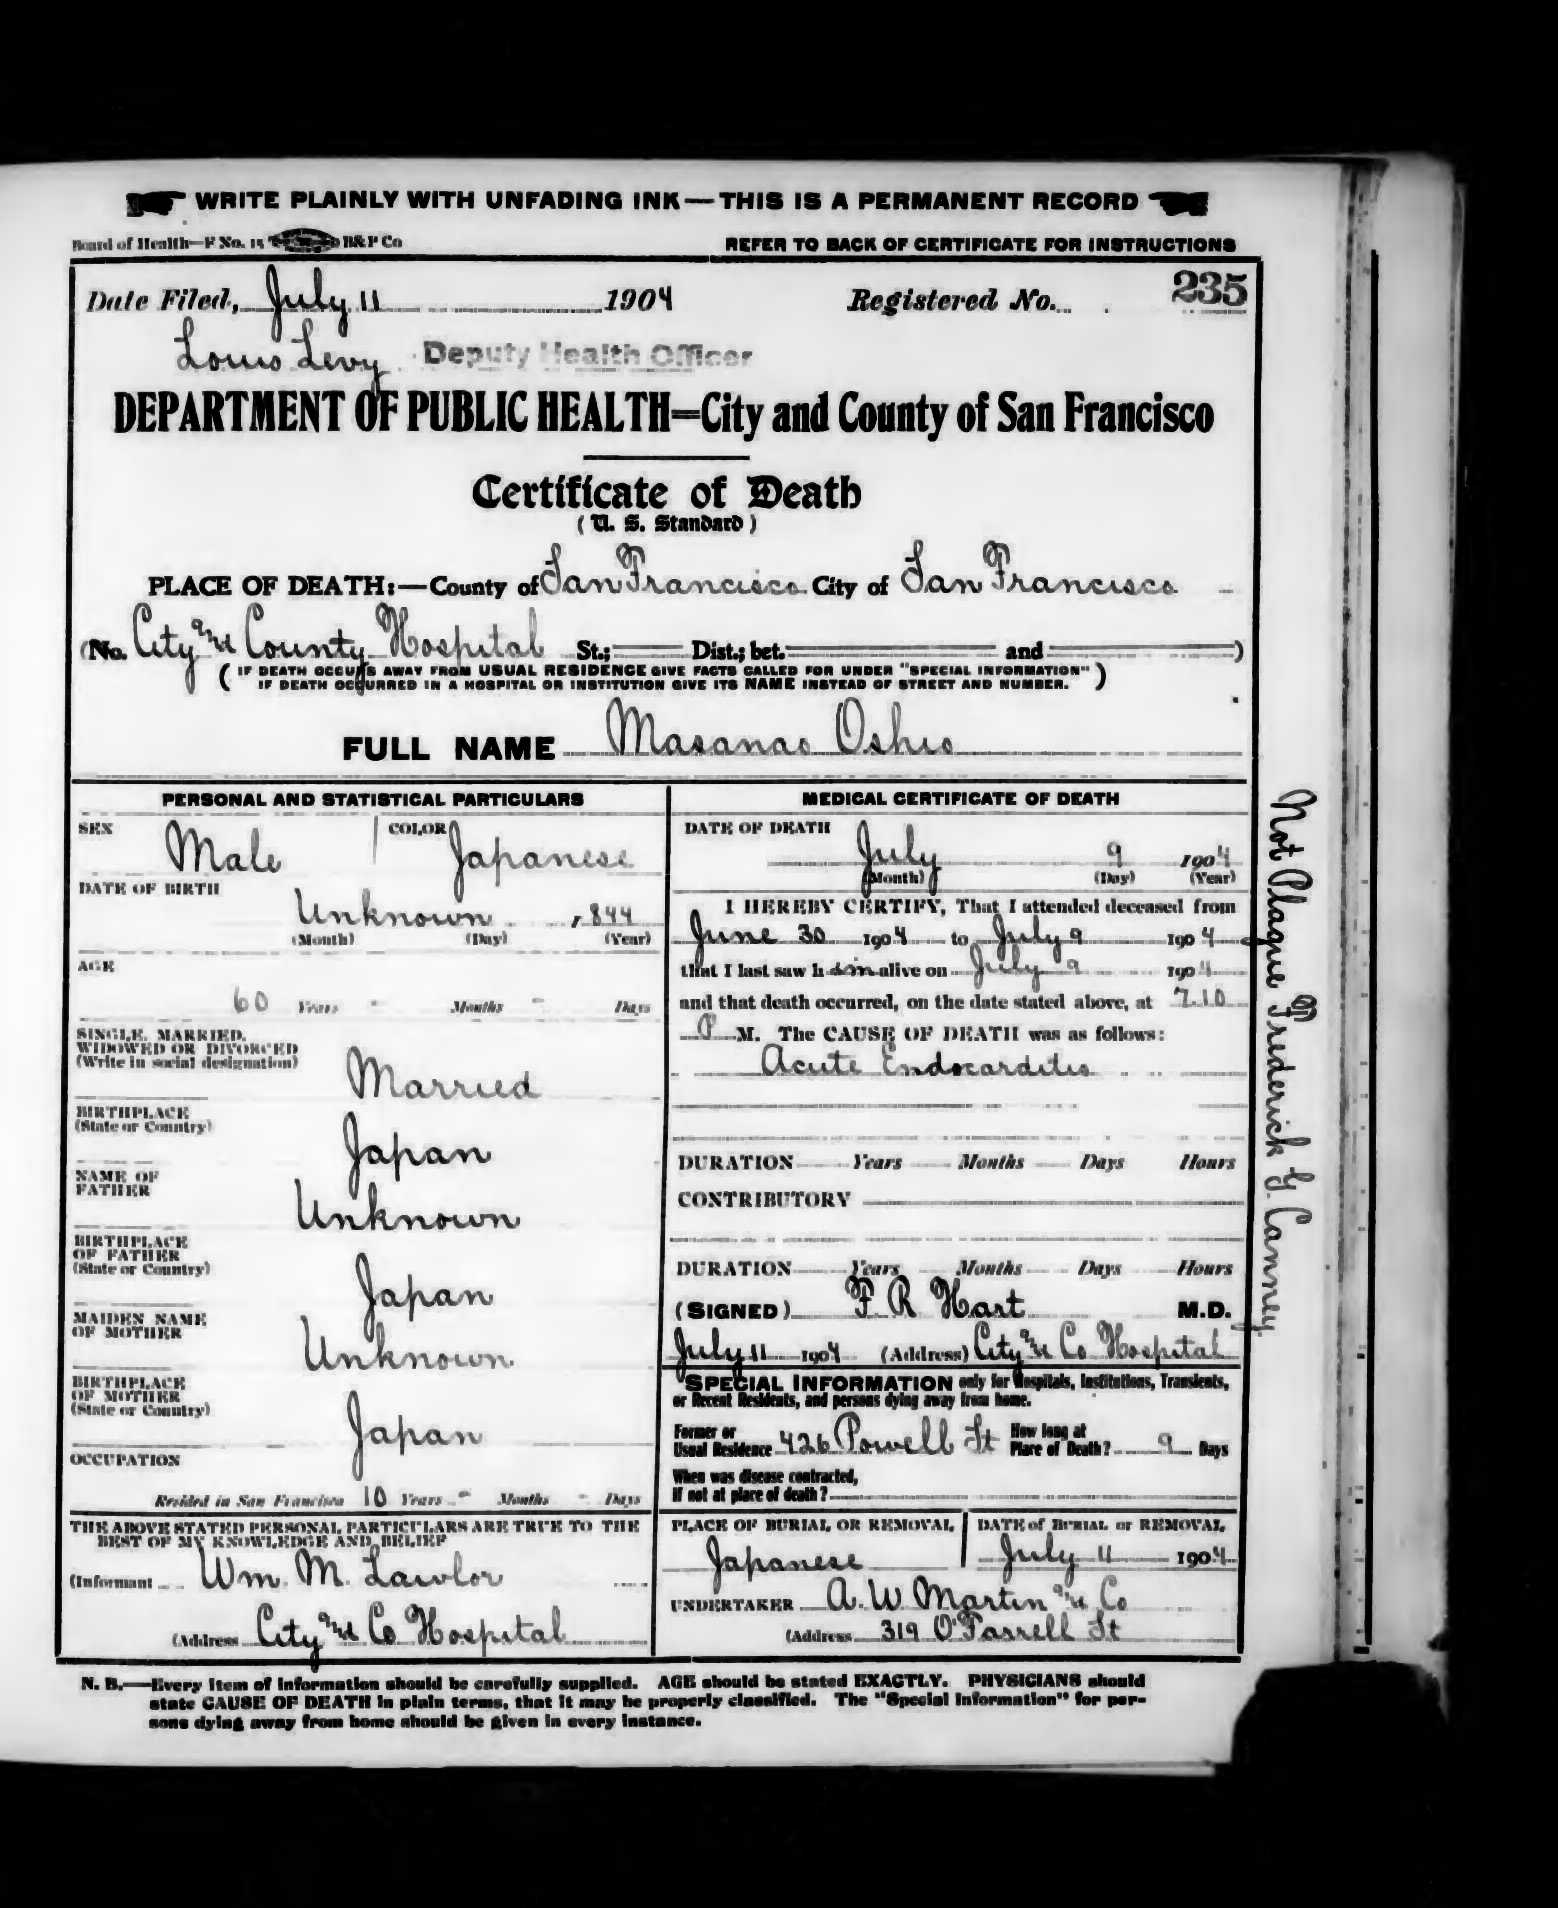 WRITE PLAINLY WITH UNFADING INK—THIS IS A PERMANENT RECORD
Board of Health—F No. 15 B&P Co
REFER TO BACK OF CERTIFICATE FOR INSTRUCTIONS
Date Filed, July 11 1904 Registered No. 235
Louis Levy Deputy Health Officer
DEPARTMENT OF PUBLIC HEALTH=City and County of San Francisco
Certificate of Death
(U. S. Standard)
PLACE OF DEATH:—County of San Francisco City of San Francisco
(No. City and County Hospital St.; Dist.; bet. and )
(IF DEATH OCCURS AWAY FROM USUAL RESIDENCE GIVE FACTS CALLED FOR UNDER "SPECIAL INFORMATION"
IF DEATH OCCURRED IN A HOSPITAL OR INSTITUTION GIVE ITS NAME INSTEAD OF STREET AND NUMBER.)
FULL NAME Masanao Oshio
PERSONAL AND STATISTICAL PARTICULARS
SEX Male COLOR Japanese
DATE OF BIRTH
Unknown , 844
(Month) (Day) (Year)
AGE
60 Years - Months - Days
SINGLE, MARRIED,
WIDOWED OR DIVORCED
(Write in social designation)
Married
BIRTHPLACE
(State or Country)
Japan
NAME OF
FATHER
Unknown
BIRTHPLACE
OF FATHER
(State or Country)
Japan
MAIDEN NAME
OF MOTHER
Unknown
BIRTHPLACE
OF MOTHER
(State or Country)
Japan
OCCUPATION
Resided in San Francisco 10 Years - Months - Days
THE ABOVE STATED PERSONAL PARTICULARS ARE TRUE TO THE
BEST OF MY KNOWLEDGE AND BELIEF
(Informant Wm. M. Lawlor
(Address City and Co Hospital
MEDICAL CERTIFICATE OF DEATH
DATE OF DEATH
July 9 1904
(Month) (Day) (Year)
I HEREBY CERTIFY, That I attended deceased from
June 30 1904 to July 9 1904
that I last saw h im alive on July 9 1904
and that death occurred, on the date stated above, at 7.10
P M. The CAUSE OF DEATH was as follows:
Acute Endocarditis
DURATION Years Months Days Hours
CONTRIBUTORY
DURATION Years Months Days Hours
(SIGNED) F R Hart M.D.
July 11 1904 (Address) City and Co Hospital
SPECIAL INFORMATION only for Hospitals, Institutions, Transients,
or Recent Residents, and persons dying away from home.
Former or
Usual Residence 426 Powell St
How long at
Place of Death? 9 Days
When was disease contracted,
If not at place of death?
PLACE OF BURIAL OR REMOVAL
Japanese
DATE of BURIAL or REMOVAL
July 11 1904
UNDERTAKER A. W. Martin and Co
(Address 319 O'Farrell St
Not Plague Frederick G. Canney
N. B.—Every item of information should be carefully supplied. AGE should be stated EXACTLY. PHYSICIANS should
state CAUSE OF DEATH in plain terms, that it may be properly classified. The "Special Information" for per-
sons dying away from home should be given in every instance.